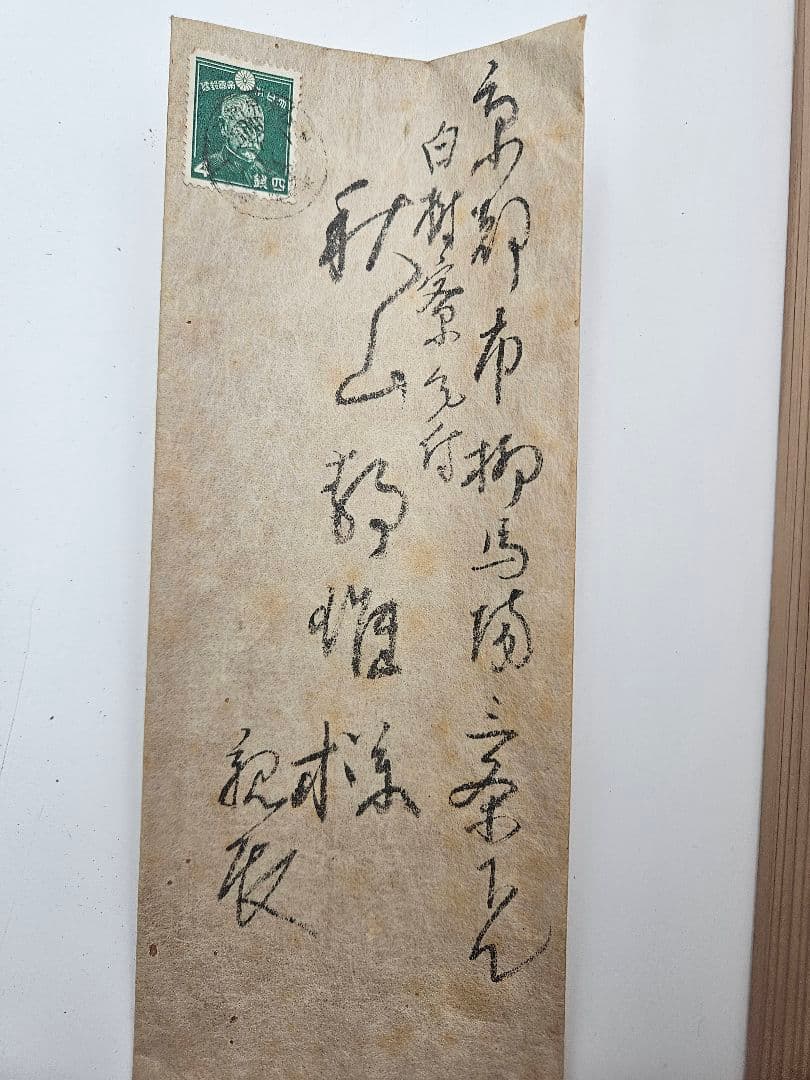 京都市柳馬場三条下ル
白樹寮気付
秋山静雄様
親展
大日本帝国郵便
4
四銭